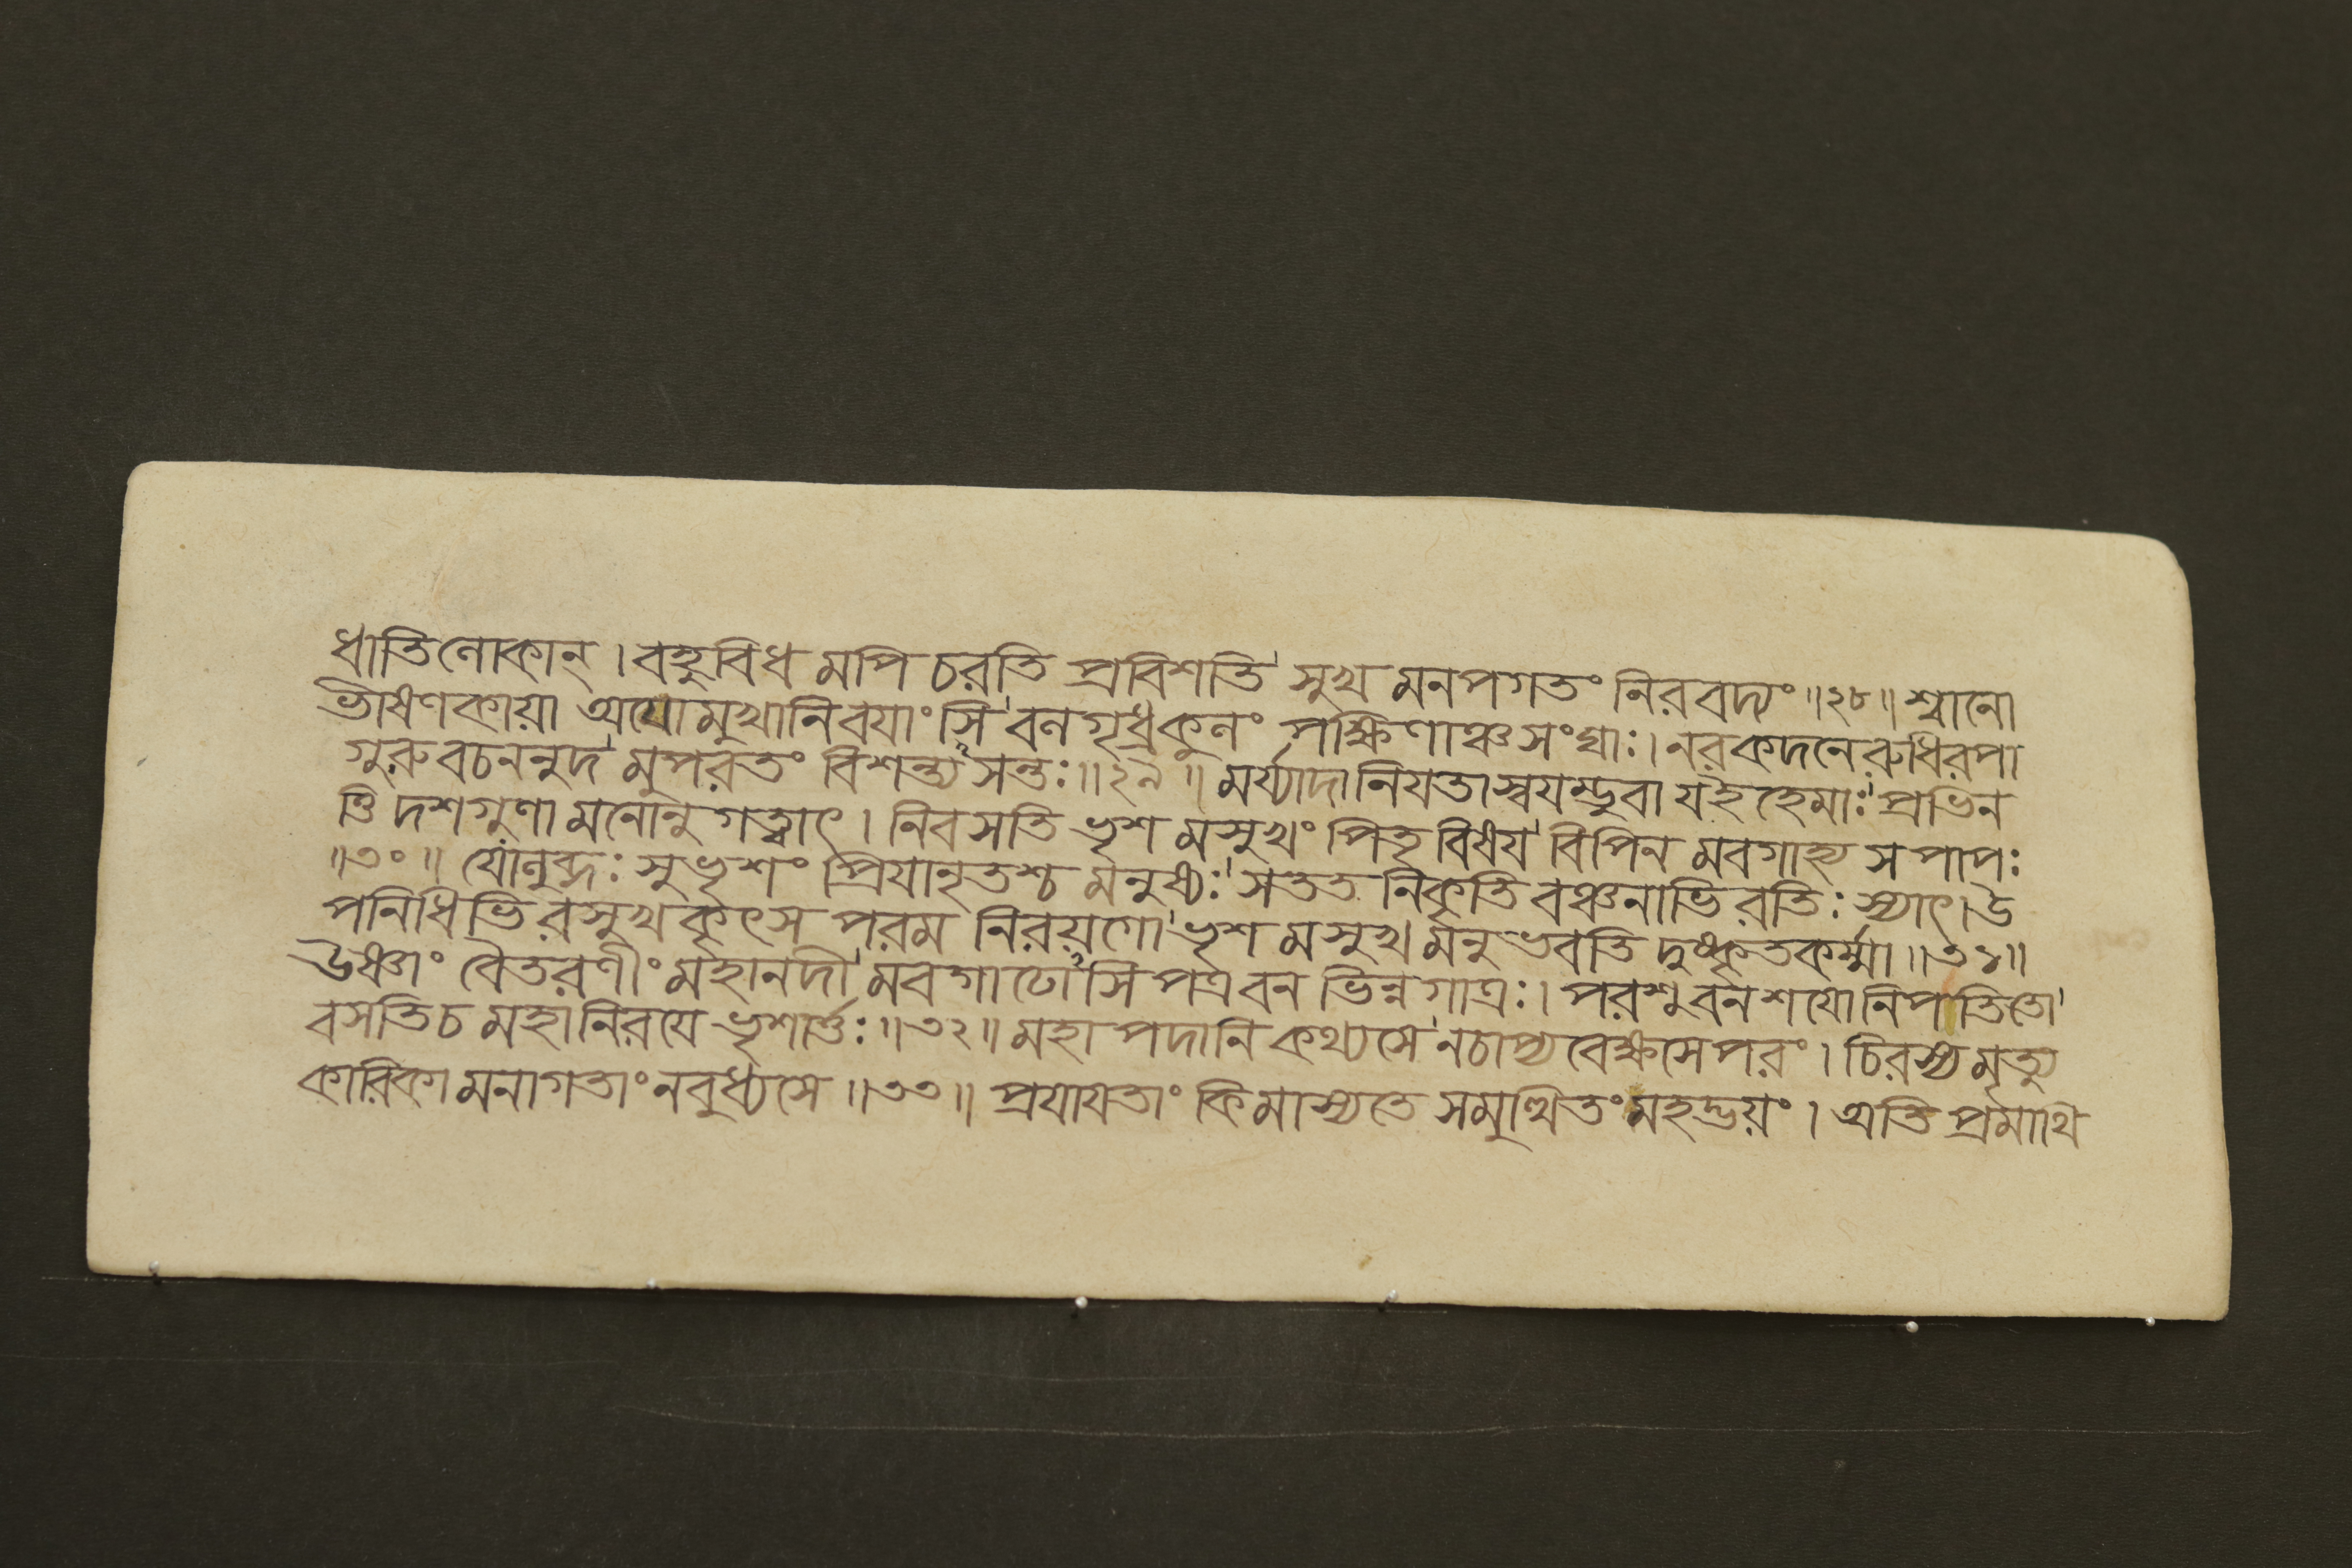 ধাতিলোকান্ । বহুবিধ মপি চরতি প্রবিশতি সুখ মনপগতং নিরবদ্যং ॥২৮॥ শ্বানো
ভীষণকায়া অযোমুখানিবযাংসি বলগৃধ্রকুলং পক্ষিণাঞ্চসংঘাঃ । নরকদনেরুধিরপা
গুরুবচননুদ মুপরতং বিশন্ত্যসন্তঃ ॥২৯॥ মর্য্যাদানিযতাস্বযম্ভুবা যইহেমাঃ প্রভিন
ত্তি দশগুণা মনোনুগত্বাৎ । নিবসতি ভৃশ মসুখং পিতৃবিষয বিপিন মবগাহ্য স পাপঃ
॥৩০॥ যোলুব্ধঃ সুভৃশং প্রিযানৃতশ্চ মনুষ্যঃ সতত নিকৃতি বঞ্চনাভিরতিঃ স্যাৎ । উ
পনিধিভি রসুখকৃৎস পরম নিরয়গো ভৃশ মসুখ মনুভবতি দুষ্কৃতকর্ম্মা ॥৩১॥
উষ্ণাং বৈতরণীং মহানদী মবগাঢোঽসি পত্রবন ভিন্নগাত্রঃ । পরশুবনশযো নিপতিতো
বসতিচ মহানিরযে ভৃশার্ত্তঃ ॥৩২॥ মহা পদানি কথ্যসে নচাপ্যবেক্ষসে পরং । চিরস্য মৃত্যু
কারিকা মনাগতাং নবুধ্যসে ॥৩৩॥ প্রযাযতাং কিমাস্যতে সমুত্থিতং মহদ্ভয়ং । অতি প্রমাথি